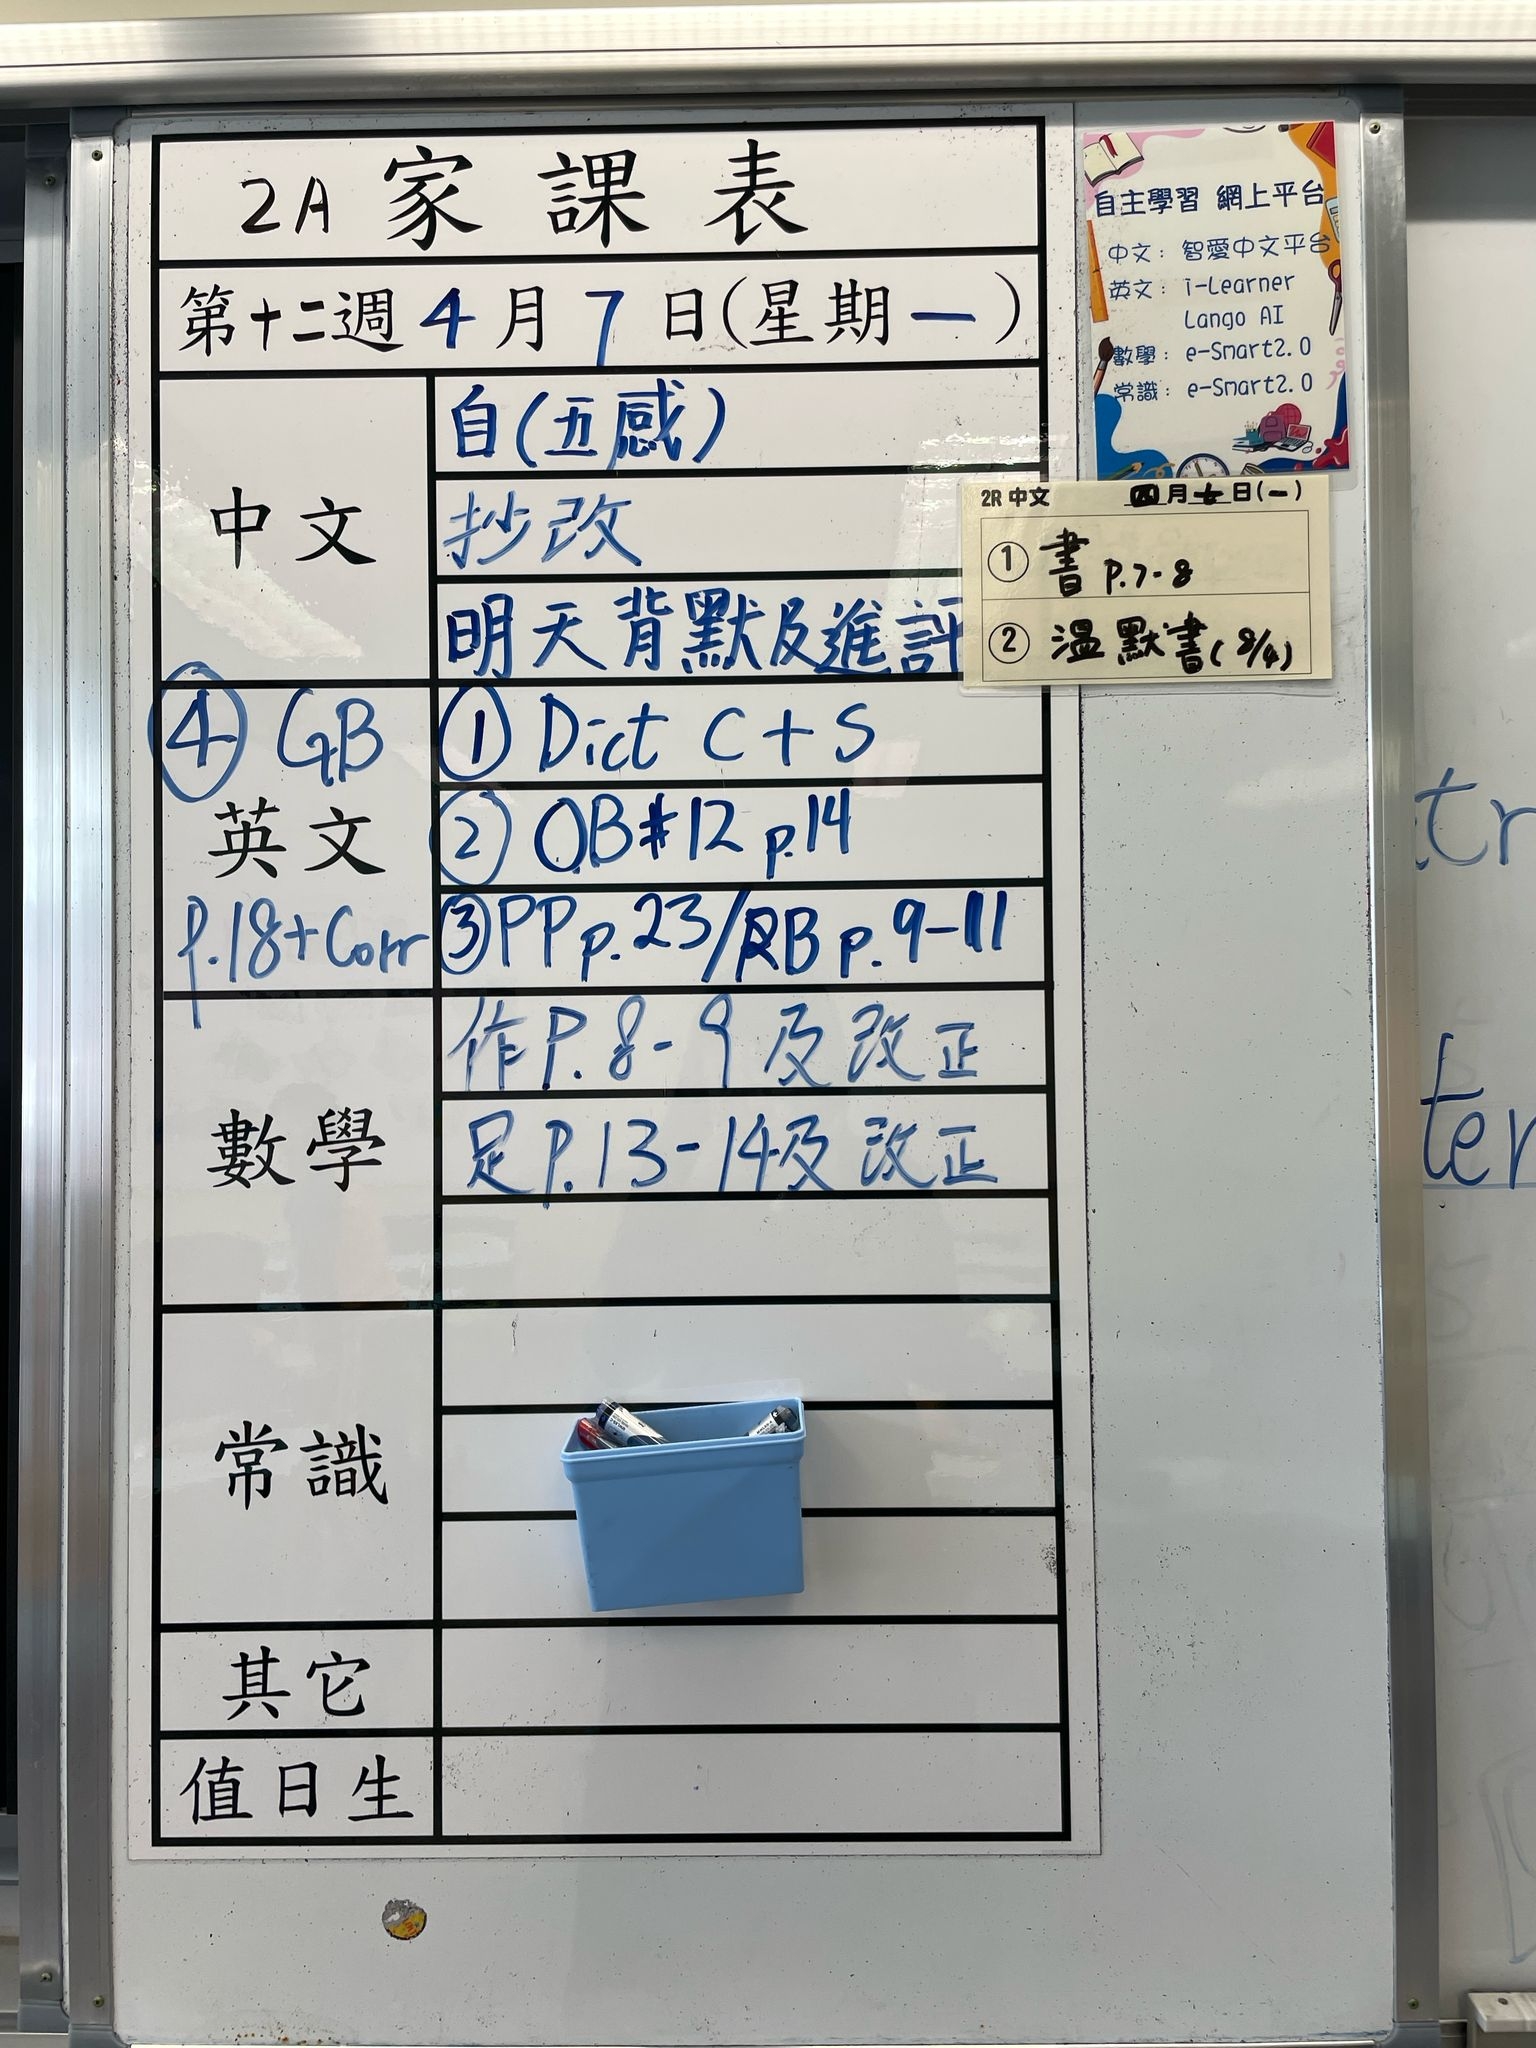 2A 家課表
第十二週 4月7日(星期一)
中文
自(五感)
抄改
明天背默及進評
英文
① Dict C+S
② OB#12 p.14
③ PP p.23/RB p.9-11
④ GB
p.18+Corr
數學
作P.8-9及改正
足P.13-14及改正
常識
其它
值日生
自主學習 網上平台
中文: 智愛中文平台
英文: i-Learner
Lango AI
數學: e-Smart2.0
常識: e-Smart2.0
2R 中文 四月七日(一)
① 書 P.7-8
② 溫默書(8/4)